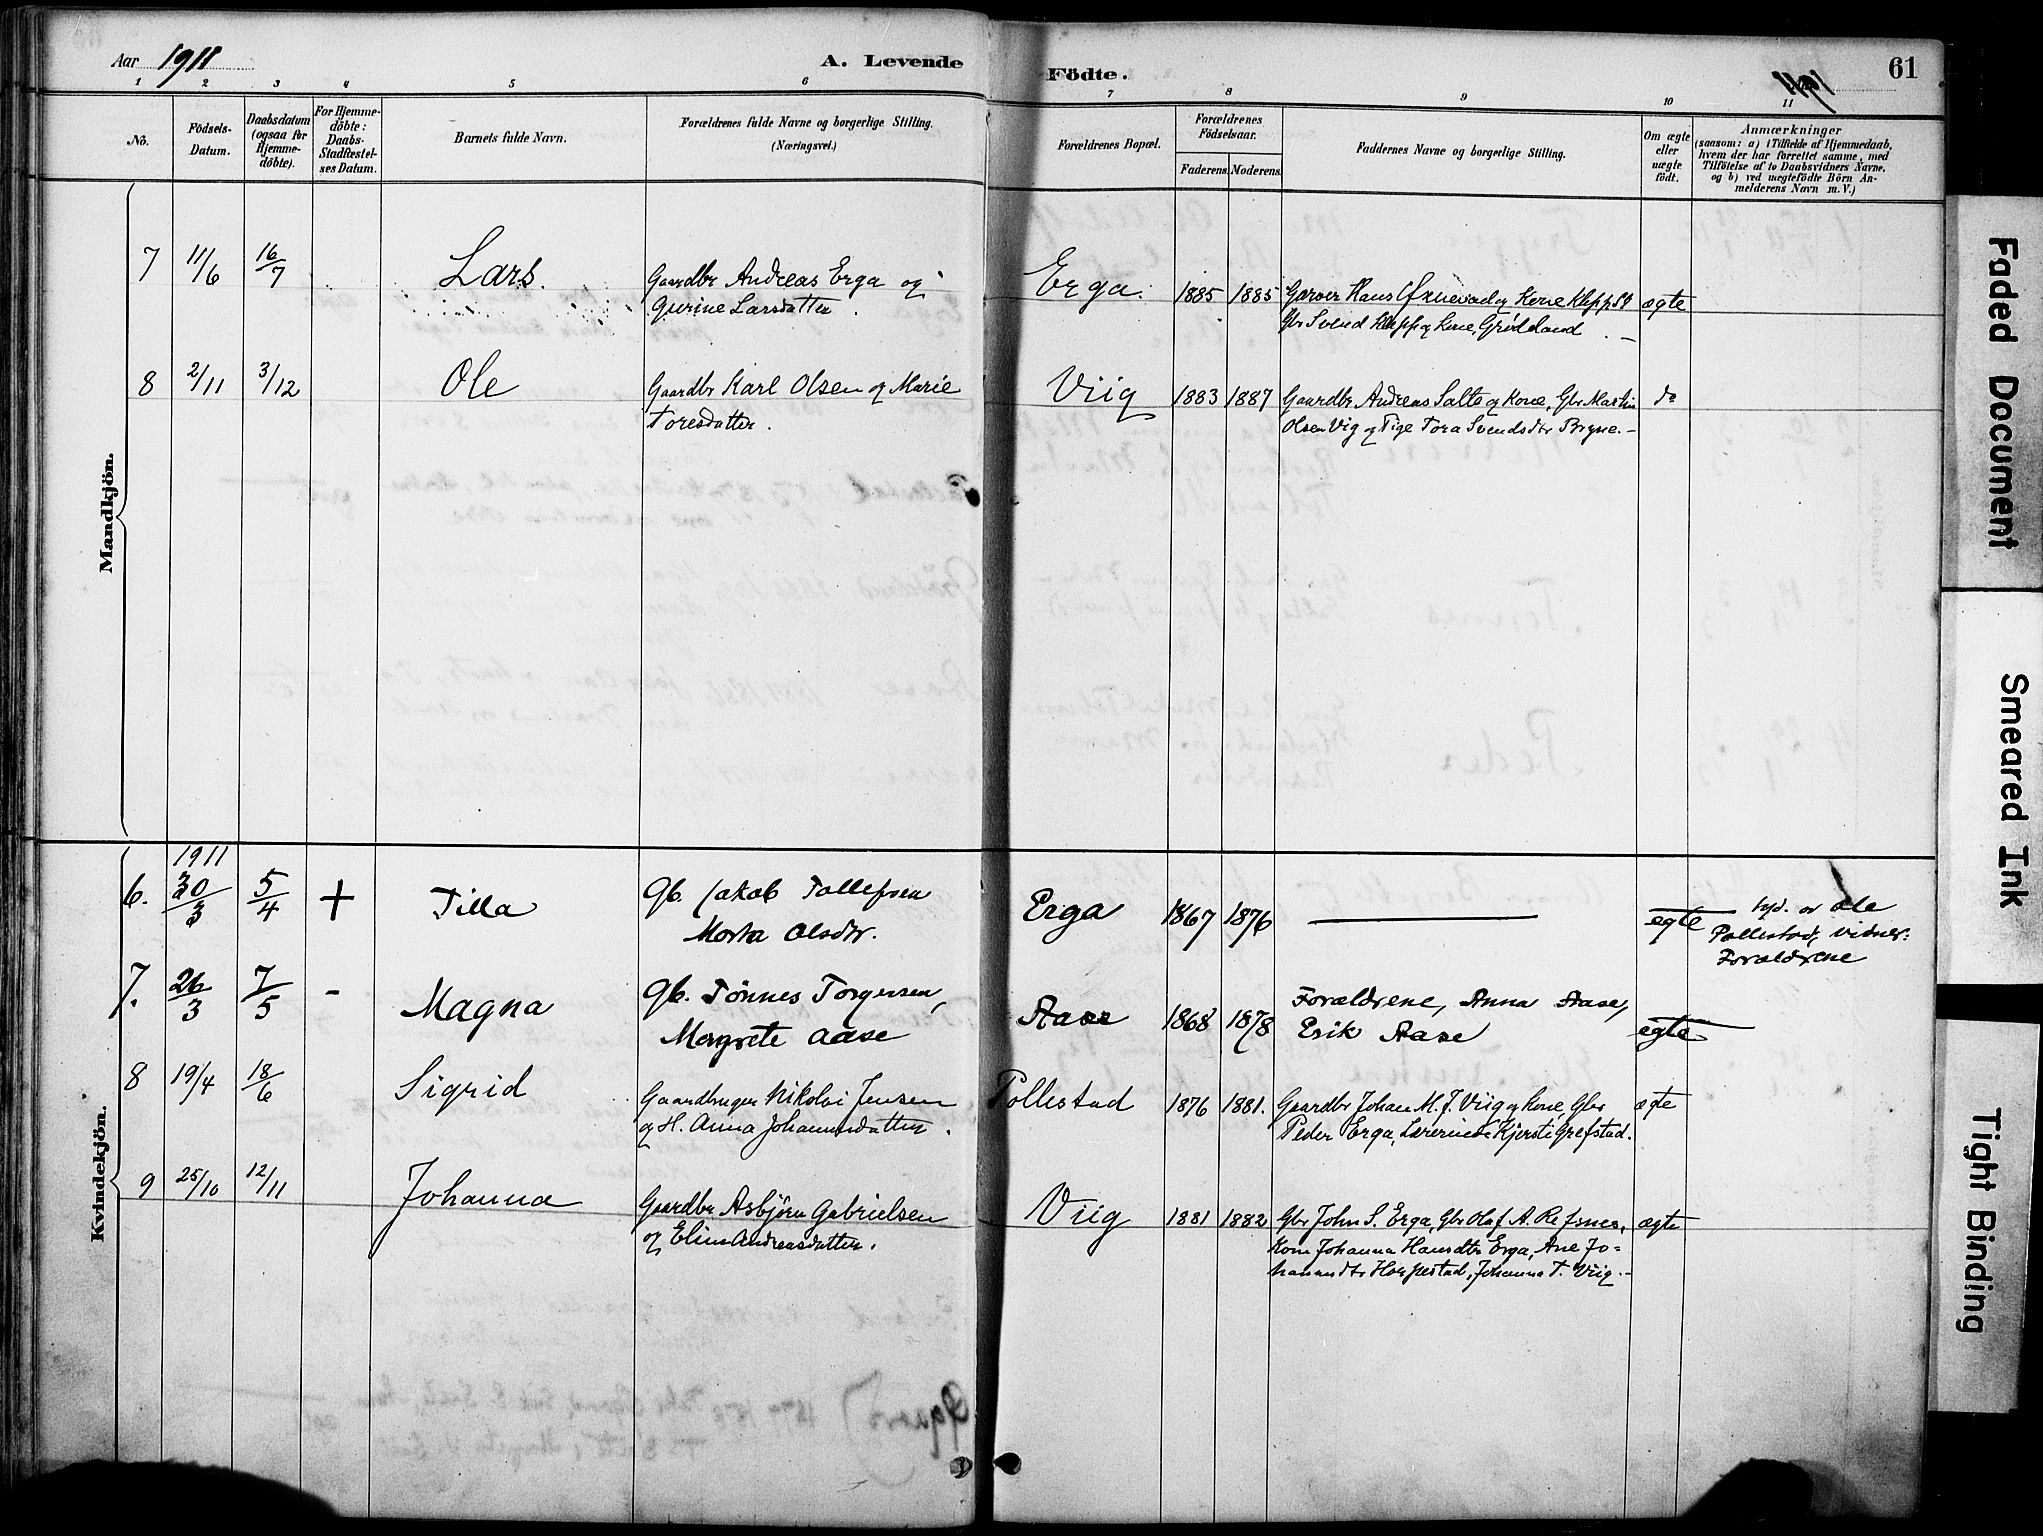 Aar 1911
A. Levende
Födte.
1911
61
1 2 3 4 5 6 7 8 9 10 11
No.
Födsels-
Datum.
Daabsdatum
(ogsaa for
Hjemme-
döbte).
For Hjemme-
döbte:
Daabs-
Stadfæstel-
ses Datum.
Barnets fulde Navn.
Forældrenes fulde Navne og borgerlige Stilling.
(Næringsvei.)
Forældrenes Bopæl.
Forældrenes
Födselsaar.
Faderens. Moderens.
Faddernes Navne og borgerlige Stilling.
Om ægte
eller
uægte
födt.
Anmærkninger
(saasom: a) i Tilfælde af Hjemmedaab,
hvem der har forrettet samme, med
Tilföielse af to Daabsvidners Navne,
og b) ved uægtefödte Börn An-
melderens Navn m. V.)
Mandkjön.
7 11/6 16/7 Lars. Gaardbr Andreas Erga og Erga. 1885 1885 Garver Hans og Kone Klepp St ægte
Gurine Larsdatter. Gbr Svend Klepp og Kone, Grödeland. –
8 2/11 3/12 Ole Gaardbr Karl Olsen og Marie Viig 1883 1887 Gaardbr Andreas Salte og Kone, Gbr Martin do
Toresdatter. Olsen Vig og Pige Tora Svendsdtr Bryne. –
Kvindekjön.
1911
6. 30/3 5/4 + Tilla Gb. Jakob Tollefsen Erga 1867 1876 — egte Ole
Marta Olsdtr. Pollestad, vidner:
Forældrene
7. 26/3 7/5 - Magna Gb. Tönnes Torgersen, Aase 1868 1878 Forældrene, Anna Aase, egte
Margrete Aase Erik Aase
8 19/4 18/6 Sigrid Gaardbruger Nikolai Jensen Pollestad 1876 1881. Gaardbr Johan M. J. Viig og Kone, Gbr ægte
og H. Anna Johannesdatter. Peder Erga, Lærerinde Kjersti Grefstad.
9 25/10 12/11 Johanna Gaardbr Asbjörn Gabrielsen Viig 1881 1882 Gbr John S. Erga, Gbr Olaf A. Refsnes, ægte
og Eline Andreasdatter. Kone Johanna Hansdtr Erga, Ane Jo=
hannesdtr Horpestad, Johanna T. Viig. –
Faded Document
Smeared Ink
Tight Binding